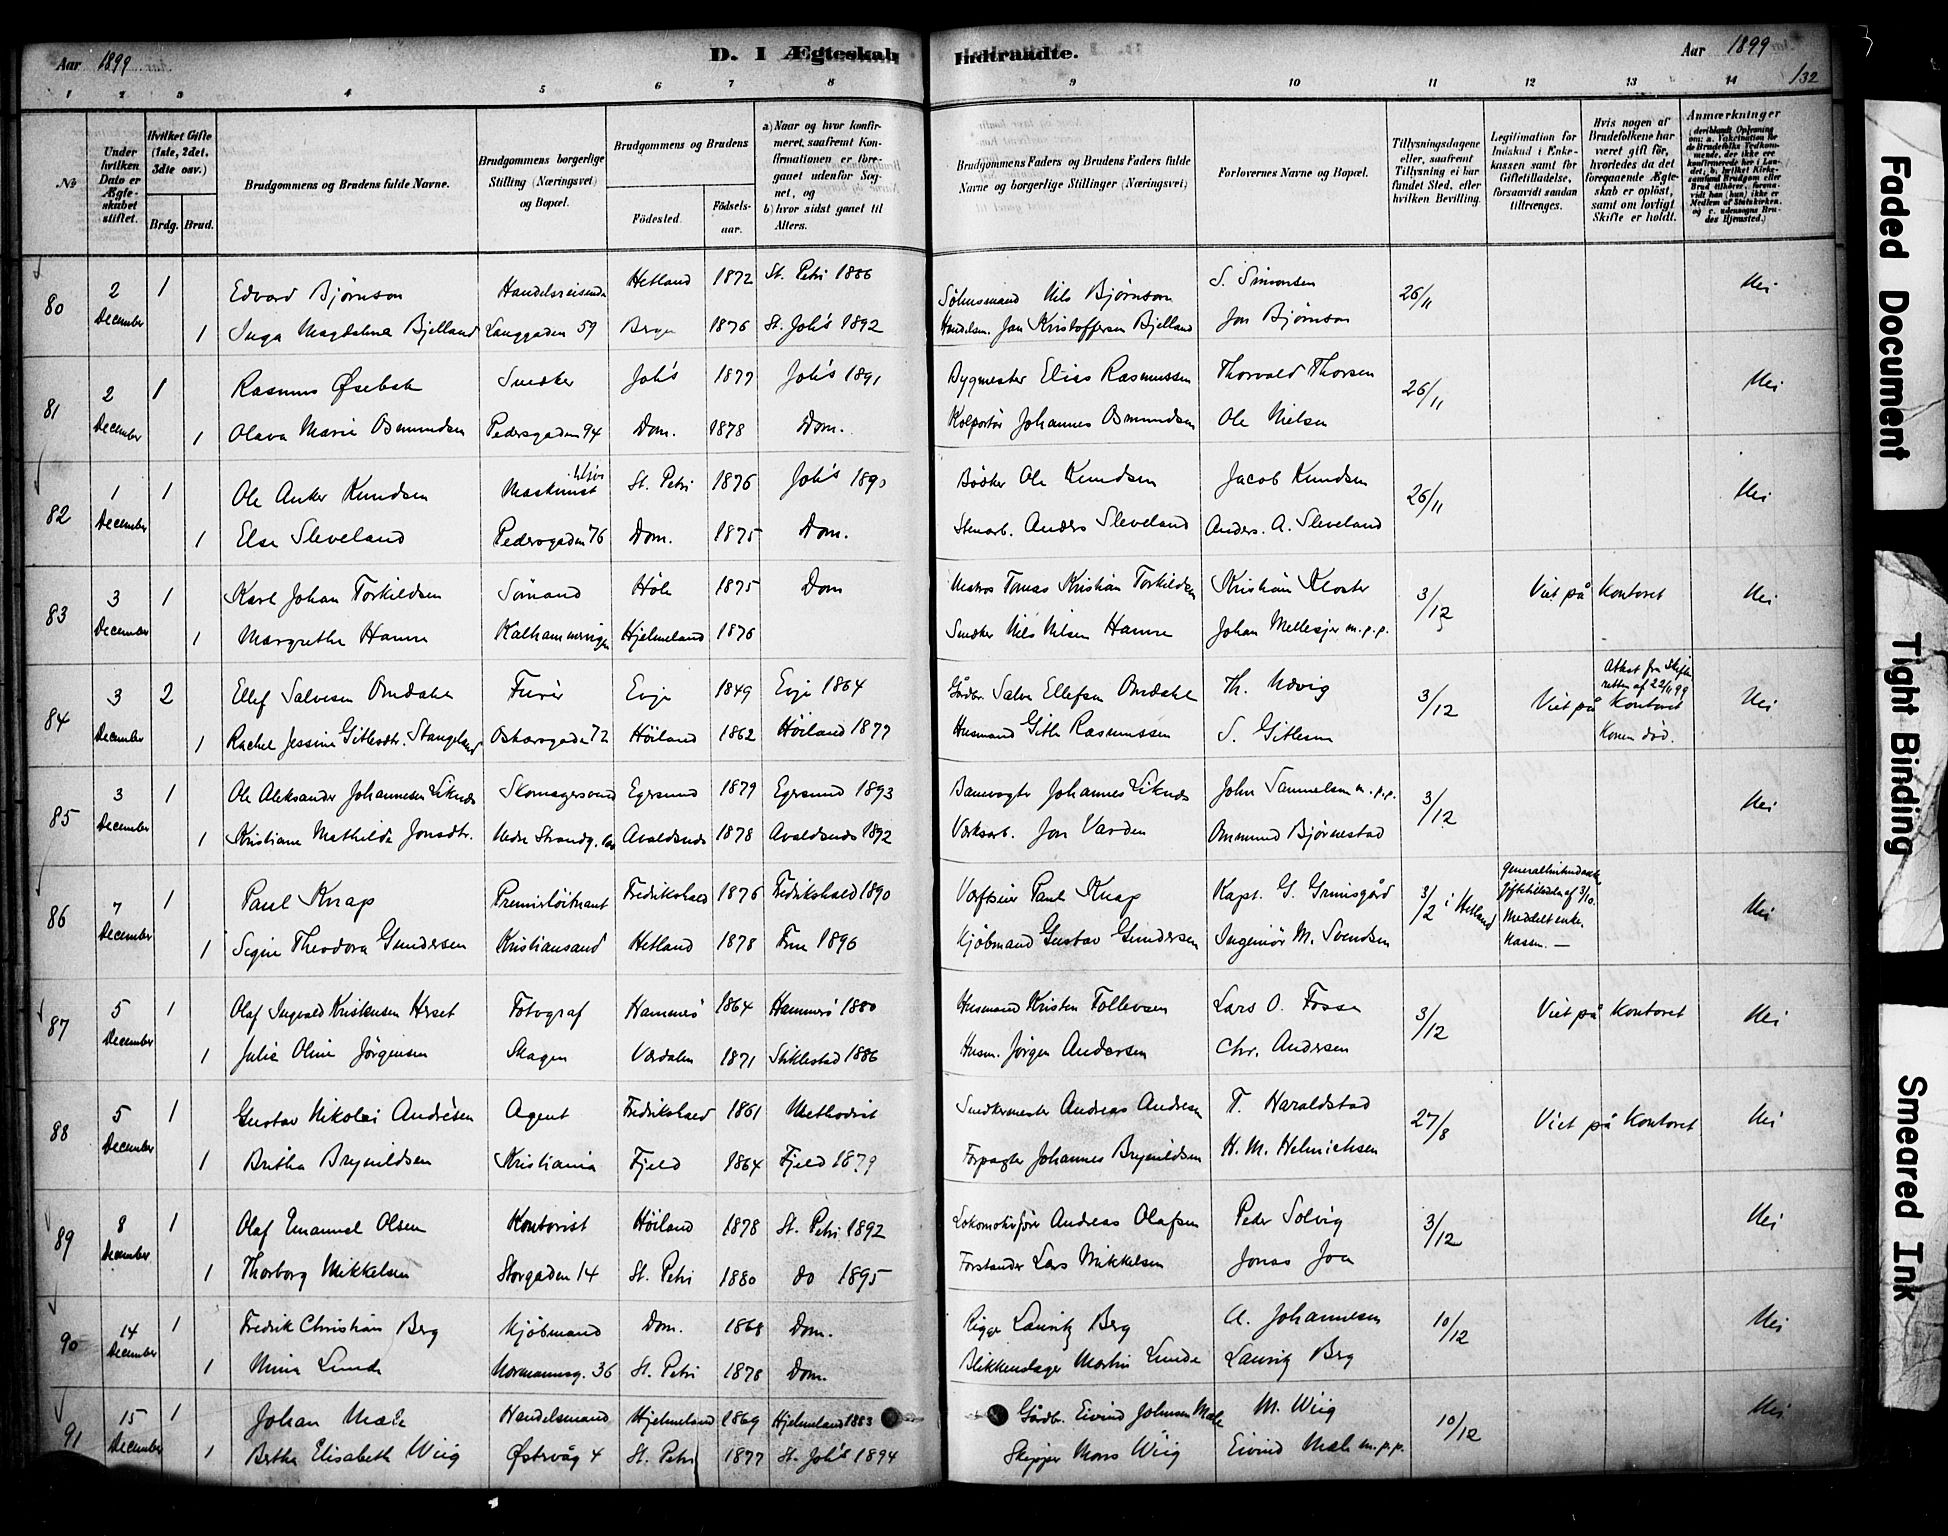 Aar 1899
D. I Ægteskab Indtraadte.
Aar 1899
132
1 2 3 4 5 6 7 8 9 10 11 12 13 14
No
Under hvilken Dato er Ægteskabet stiftet.
Hvilket Gifte (1ste, 2det, 3die osv.)
Brdg. Brud.
Brudgommens og Brudens fulde Navne.
Brudgommens borgerlige Stilling (Næringsvei) og Bopæl.
Brudgommens og Brudens
Fødested. Fødselsaar.
a) Naar og hvor konfirmeret, saafremt Konfirmationen er foregaaet udenfor Sognet, og
b) hvor sidst gaaet til Alters.
Brudgommens Faders og Brudens Faders fulde Navne og borgerlige Stillinger (Næringsvei)
Forlovernes Navne og Bopæl.
Tillysningsdagene eller, saafremt Tillysning ei har fundet Sted, efter hvilken Bevilling.
Legitimation for Indskud i Enkekassen samt for Giftetilladelse, forsaavidt saadan tiltrænges.
Hvis nogen af Brudefolkene har været gift før, hvorledes da det foregaaende Ægteskab er opløst, samt om lovligt Skifte er holdt.
Anmærkninger
80 2 December 1 Edvard Bjørnson Handelsreisende Hetland 1872 St. Petri 1886 Nils Bjørnson S. Simonsen 26/11 Nei
1 Inga Magdalena Bjelland Langgaden 59 Bergen 1876 St. Joh's 1892 Handelsm. Jan Kristoffersen Bjelland Jon Bjørnson
81 2 December 1 Rasmus Øsebak Snedker Joh's 1877 Joh's 1891 Bygmester Elias Rasmussen Thorvald Thorsen 26/11 Nei
1 Olava Marie Osmundsen Pedersgaden 94 Dom. 1878 Dom. Kolportør Johannes Osmundsen Ole Nielsen
82 1 December 1 Ole Anker Knudsen Maskinist St. Petri 1876 Joh's 189 Bødker Ole Knudsen Jacob Knudsen 26/11 Nei
1 Else Sleveland Pedersgaden 76 Dom. 1875 Dom. Stenarb. Anders Sleveland Anders. A. Sleveland
83 3 December 1 Karl Johan Torkildsen Sømand Høle 1875 Dom Matros Tomas Kristian Torkildsen Kristian Kloster 3/12 Viet på Kontoret Nei
1 Margrethe Hamre Kalhammervigen Hjelmeland 1876 Snedker Nils Nilsen Hamre Johan Mellesjer m.p.p.
84 3 December 2 Ellef Salvesen Omdahl Furér Evje 1849 Evje 1864 Gårdbr. Salve Ellefsen Omdahl Th. Udvig 3/12 Viet på Kontoret Attest fra Skifteretten af 22/11 99 Nei
1 Rachel Jessine Gitlesdtr. Stangeland Oskarsgade 72 Høiland 1862 Høiland 1877 Husmand Gitle Rasmussen S. Gitlesen Konen død.
85 3 December 1 Ole Aleksander Johannesen Liknes Skomagersvend Egersund 1879 Egersund 1893 Banevogter Johannes Liknes John Samuelsen m.p.p. 3/12 Nei
1 Kristiane Mathilde Jonsdtr. Nedre Strandg. Avaldsnes 1878 Avaldsnes 1892 Værksarb. Jon Varden Ommund Bjørnestad
86 7 December 1 Paul Knap Premierløitnant Fredrikshald 1876 Fredrikshald 1890 Værftseier Paul Knap Kapt. G. Grimsgård 3/2 i Hetland af 3/10. Meddelt enkekassen. — Nei
1 Signe Theodora Gundersen Kristiansand Hetland 1878 Frue 1896 Kjøbmand Gustav Gundersen Ingeniør M. Svendsen
87 5 December 1 Olaf Ingvald Kristensen Herset Fotograf Hammerø 1864 Hammerø 1880 Husmand Kristen Tollevsen Lars O. Fosse 3/12 Viet på Kontoret Nei
1 Julie Oline Jørgensen Skagen Værdalen 1871 Stiklestad 1886 Husm. Jørgen Andersen Chr. Andersen
88 5 December 1 Gustav Nikolai Andrésen Agent Fredrikshald 1861 Methodist Snedkermester Andreas Andresen T. Haraldstad 27/8 Viet på Kontoret Nei
1 Britha Brynildsen Kristiania Fjeld 1864 Fjeld 1879 Forpagter Johannes Brynildsen H. M. Helmichsen
89 8 December 1 Olaf Emanuel Olsen Kontorist Høiland 1878 St. Petri 1892 Lokomotivfører Andreas Olafsen Peder Solvig 3/12 Nei
1 Thorborg Mikkelsen Storgaden 14 St. Petri 1880 do 1895 Forstander Lars Mikkelsen Jonas Joa
90 14 December 1 Fredrik Christian Berg Kjøbmand Dom. 1868 Dom. Rigger Lauritz Berg A. Johannesen 10/12 Nei
1 Mina Lunde Normannsg. 36 St. Petri 1878 Dom. Blikkenslager Martin Lunde Lauritz Berg
91 15 December 1 Johan Mæle Handelsmand Hjelmeland 1869 Hjelmeland 1883 Gårdbr. Eivind Johnsen Mæle M. Wiig 10/12 Nei
1 Berthe Elisabeth Wiig Østervåg 4 St. Petri 1877 St. Joh's 1894 Skipper Mons Wiig Eivind Mæle m.p.p.
Faded Document
Tight Binding
Smeared Ink